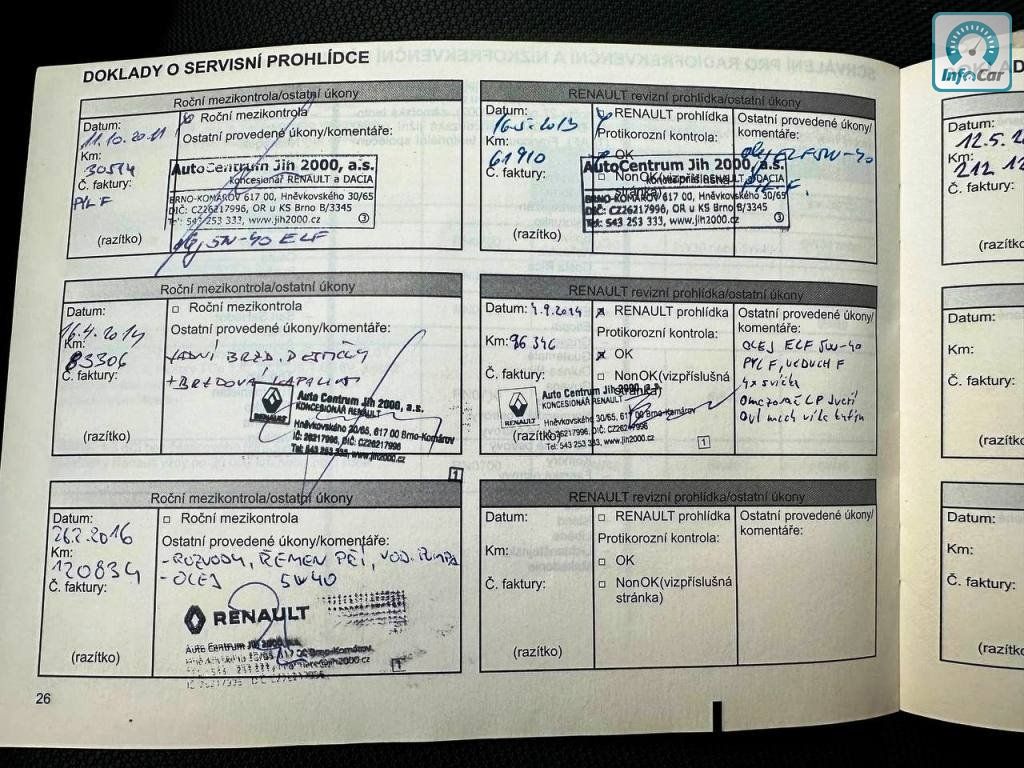 InfoCar
DOKLADY O SERVISNÍ PROHLÍDCE
Roční mezikontrola/ostatní úkony
Datum:
11.10.2011
Km:
30514
Č. faktury:
PYL F
(razítko)
Roční mezikontrola
Ostatní provedené úkony/komentáře:
AutoCentrum Jih 2000, a.s.
koncesionář RENAULT a DACIA
BRNO-KOMÁROV 617 00, Hněvkovského 30/65
DIČ: CZ26217996, OR u KS Brno B/3345
Tel: 543 253 333, www.jih2000.cz
3
olej 5W-40 ELF
RENAULT revizní prohlídka/ostatní úkony
Datum:
16.5.2013
Km:
61910
Č. faktury:
(razítko)
RENAULT prohlídka
Protikorozní kontrola:
OK
NonOK(vizpříslušná
stránka)
Ostatní provedené úkony/
komentáře:
olej ELF 5W-40
PYL F.
AutoCentrum Jih 2000, a.s.
RENAULT a DACIA
BRNO-KOMÁROV 617 00, Hněvkovského 30/65
DIČ: CZ26217996, OR u KS Brno B/3345
Tel: 543 253 333, www.jih2000.cz
3
Roční mezikontrola/ostatní úkony
Datum:
16.4.2014
Km:
83306
Č. faktury:
(razítko)
Roční mezikontrola
Ostatní provedené úkony/komentáře:
ZADNÍ BRZD. DESTIČKY
+ BRZDOVÁ KAPALINA
RENAULT
Auto Centrum Jih 2000, a.s.
KONCESIONÁŘ RENAULT
Hněvkovského 30/65, 617 00 Brno-Komárov
IČ: 26217996, DIČ: CZ26217996
Tel: 543 253 333, www.jih2000.cz
1
RENAULT revizní prohlídka/ostatní úkony
Datum: 4.9.2014
Km: 96346
Č. faktury:
(razítko)
RENAULT prohlídka
Protikorozní kontrola:
OK
NonOK(vizpříslušná
stránka)
Ostatní provedené úkony/
komentáře:
OLEJ ELF 5W-40
PYL F, VZDUCH F
4x svíčka
Auto Centrum Jih 2000, a.s.
KONCESIONÁŘ RENAULT
Hněvkovského 30/65, 617 00 Brno-Komárov
IČ: 26217996, DIČ: CZ26217996
Tel: 543 253 333, www.jih2000.cz
1
Roční mezikontrola/ostatní úkony
Datum:
26.2.2016
Km:
120834
Č. faktury:
(razítko)
Roční mezikontrola
Ostatní provedené úkony/komentáře:
- ROZVODY, ŘEMEN PŘÍ, VOD. PUMPA
- OLEJ 5W40
RENAULT
Auto Centrum Jih 2000, a.s.
617 00 Brno-Komárov
1
RENAULT revizní prohlídka/ostatní úkony
Datum:
Km:
Č. faktury:
(razítko)
RENAULT prohlídka
Protikorozní kontrola:
OK
NonOK(vizpříslušná
stránka)
Ostatní provedené úkony/
komentáře:
26
Datum:
12.5.20
Km:
212 12
Č. faktury:
(razítko
Datum:
Km:
Č. faktury:
(razítko
Datum:
Km:
Č. faktury:
(razítk